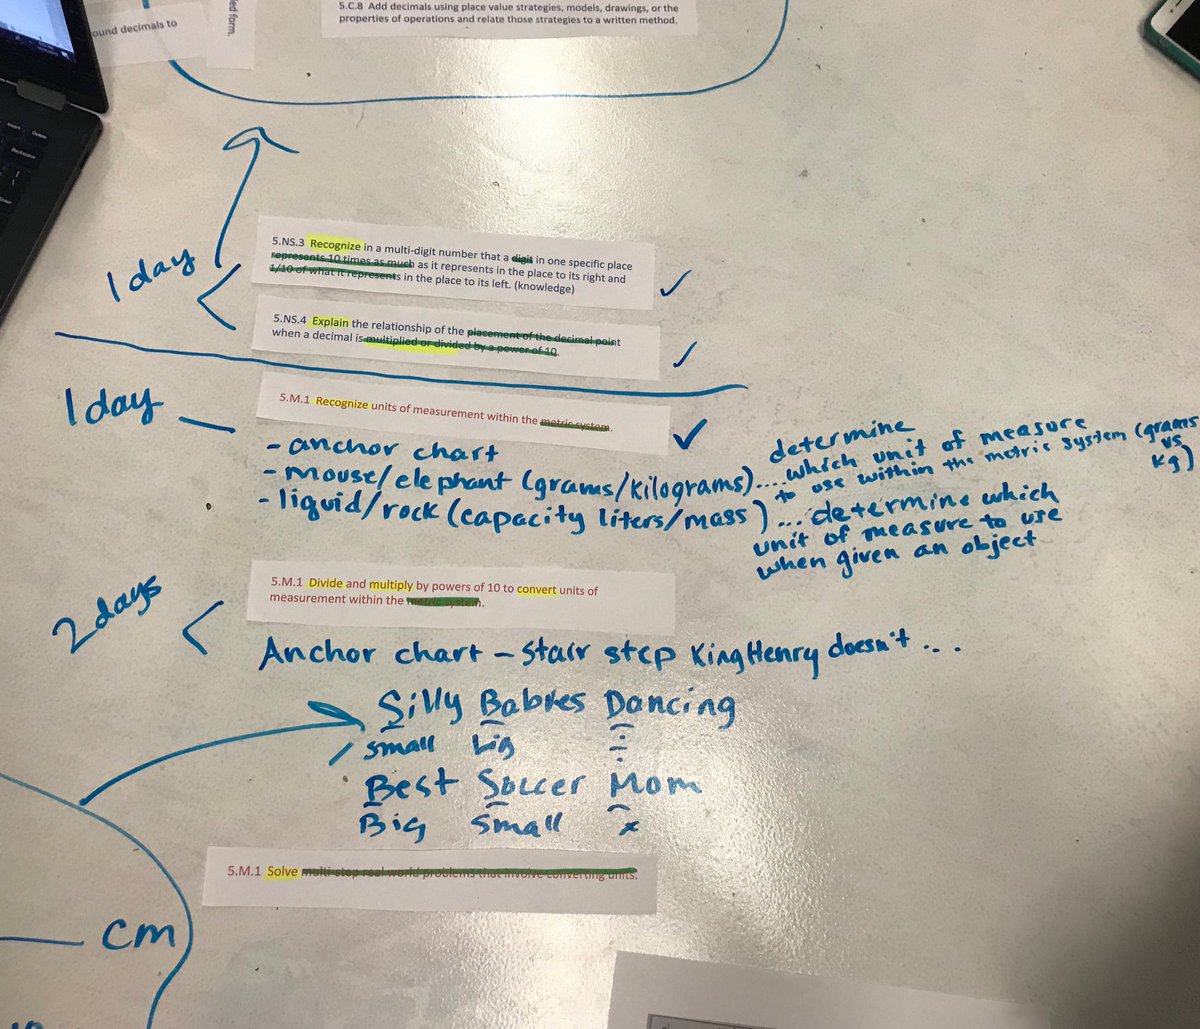 5.C.8 Add decimals using place value strategies, models, drawings, or the
properties of operations and relate those strategies to a written method.
ound decimals to
ed form.
Insert
Delete
Backspace
1 day
5.NS.3 Recognize in a multi-digit number that a digit in one specific place
represents 10 times as much as it represents in the place to its right and
1/10 of what it represents in the place to its left. (knowledge)
5.NS.4 Explain the relationship of the placement of the decimal point
when a decimal is multiplied or divided by a power of 10.
1 day
5.M.1 Recognize units of measurement within the metric system.
- anchor chart
- mouse/elephant (grams/kilograms)....
determine
which unit of measure
to use within the metric system (grams
vs
kg)
- liquid/rock (capacity liters/mass)... determine which
unit of measure to use
when given an object
2 days
5.M.1 Divide and multiply by powers of 10 to convert units of
measurement within the metric system.
Anchor chart - stair step King Henry doesn't ...
Silly Babies Dancing
small big ÷
Best Soccer Mom
Big small x
5.M.1 Solve multi-step real world problems that involve converting units.
cm